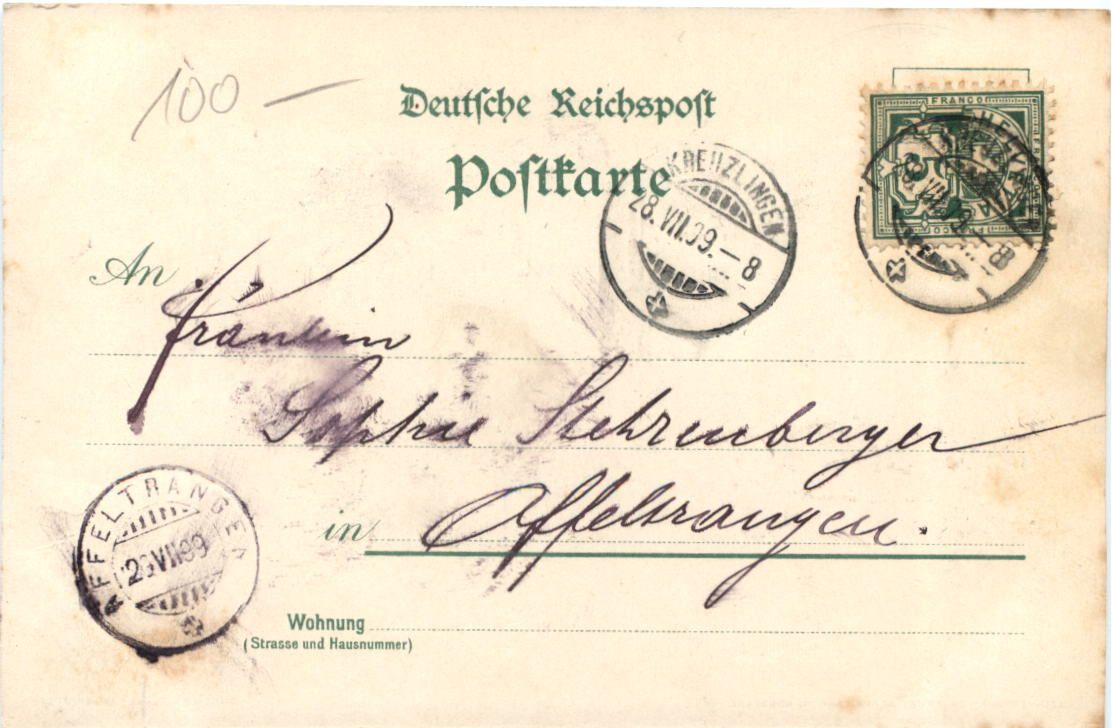 100 —
Deutsche Reichspost
Postkarte
FRANCO
HELVETIA
5
FRANCO
KREUZLINGEN
28.VII.99.–8
28.VII.99.–8
An Fräulein
Sophie Stehrenberger
in Affeltrangen.
AFFELTRANGEN
VII 99
Wohnung
(Strasse und Hausnummer)